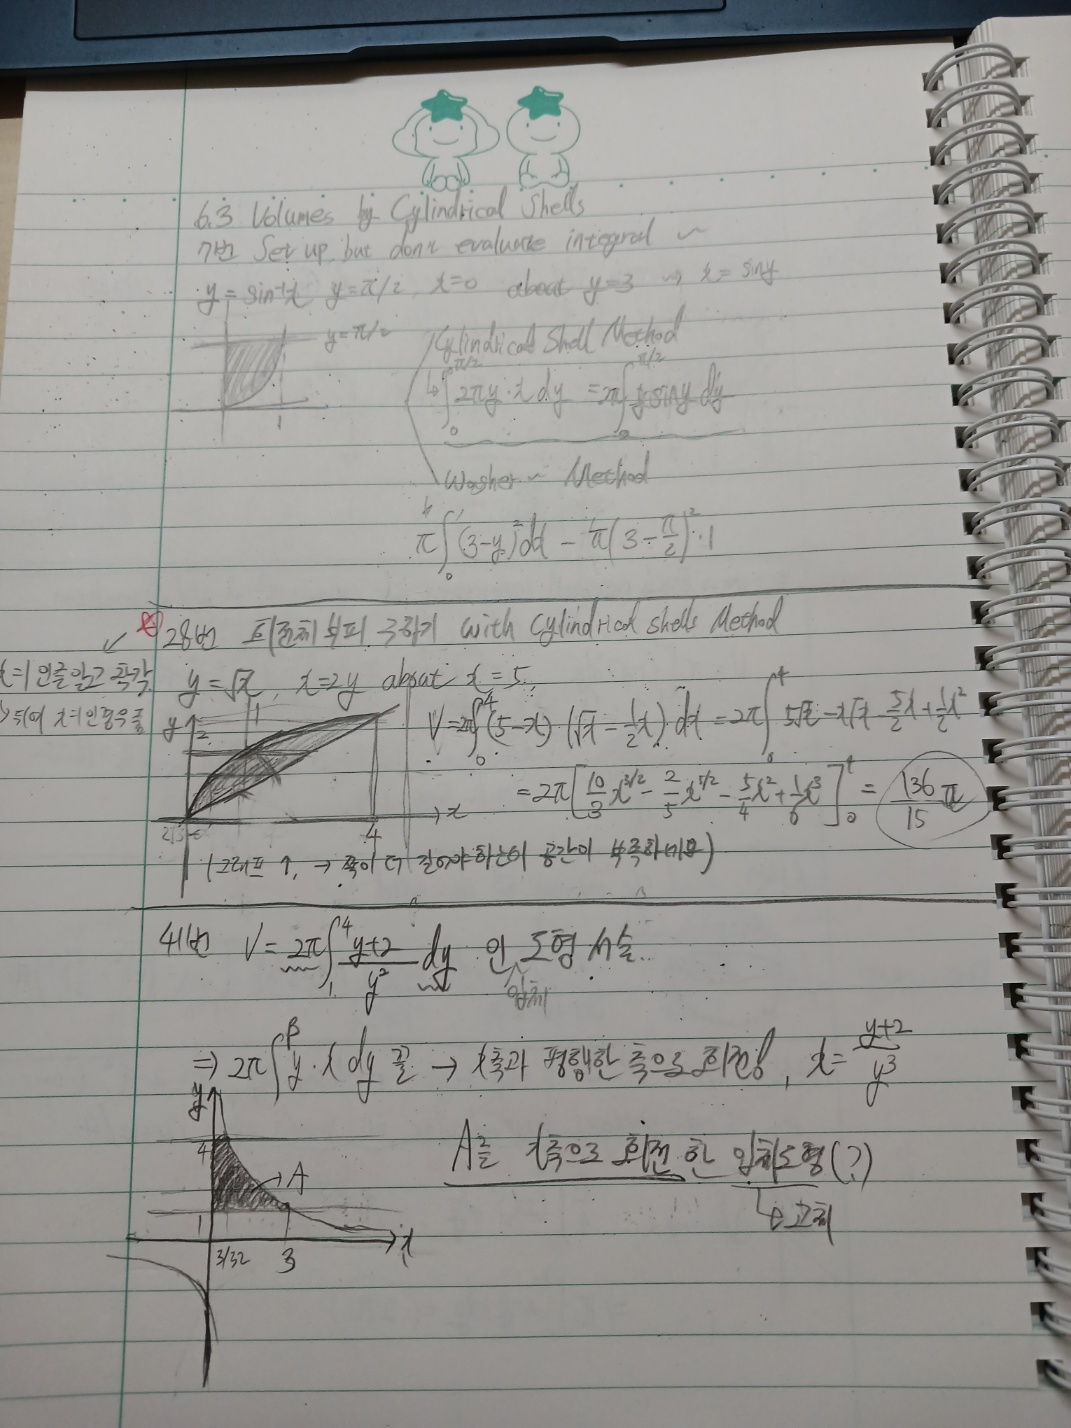 6.3 Volumes by Cylindrical Shells
7번 Set up but don't evaluate integral ~
y = sin⁻¹x y = π/2, x=0 about y=3 → x = siny
y=π/2
1
Cylindrical Shell Method
↳ ∫₀^{π/2} 2πy·x dy = 2π∫₀^{π/2} y siny dy
Washer ~ Method
π∫₀¹ (3-y)² dx - π(3-π/2)²·1
28번 회전체 부피 구하기 with Cylindrical Shells Method
x=1인줄 알고 착각
y = √x, x=2y about x = 5
y 2 1
V = 2π∫₀⁴ (5-x)·(√x - ½x) dx = 2π∫₀⁴ 5√x - x√x - 5/2 x + ½x²
= 2π[10/3 x^{3/2} - 2/5 x^{5/2} - 5/4 x² + 1/6 x³]₀⁴ = 136/15 π
4 x
(그래프 ↑, → 쪽이 더 길어야 하는데 공간이 부족하네요)
41번 V = 2π∫₁⁴ (y+2)/y² dy 인 도형 서술.
입체
⇒ 2π∫^β y·x dy 꼴 → x축과 평행한 축으로 회전, x = (y+2)/y³
y
4
A
A를 x축으로 회전 한 입체도형(?)
1
3/32 3 x